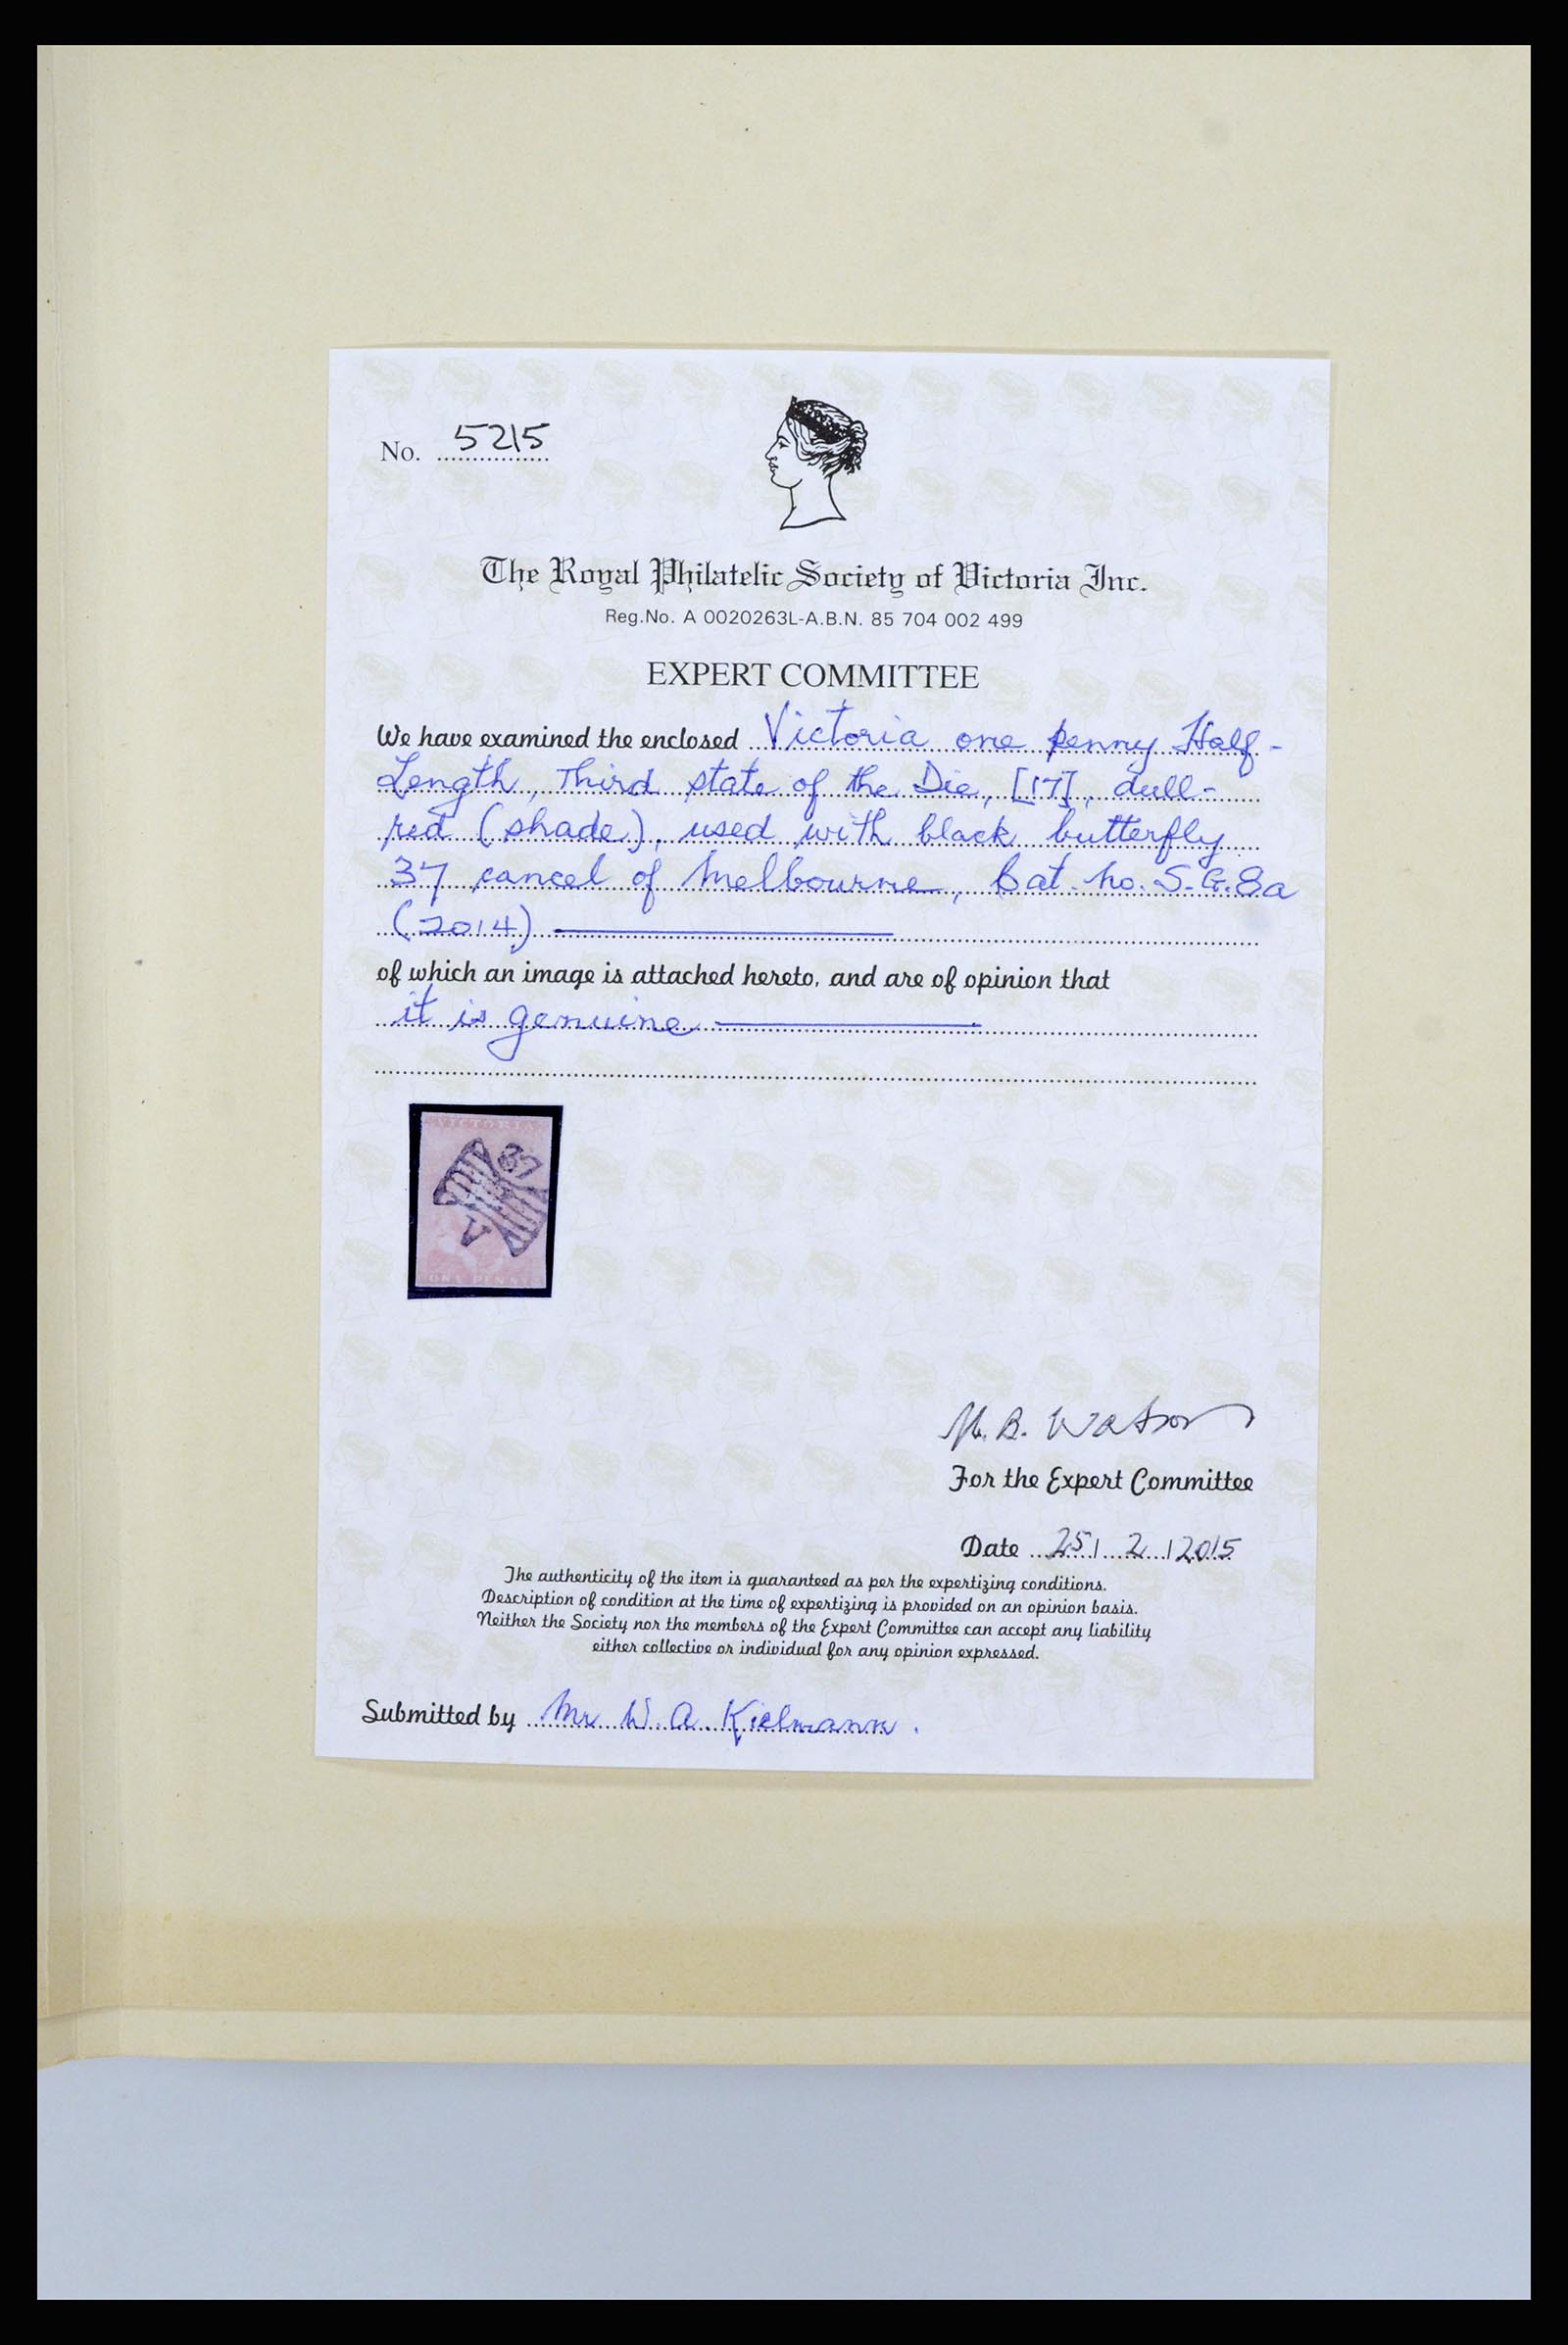 No. 5215
The Royal Philatelic Society of Victoria Inc.
Reg.No. A 0020263L-A.B.N. 85 704 002 499
EXPERT COMMITTEE
We have examined the enclosed Victoria one penny Half-
Length, Third state of the Die, [17], dull-
red (shade), used with black butterfly
37 cancel of Melbourne, Cat. No. S.G.8a
(2014)
of which an image is attached hereto, and are of opinion that
it is genuine
VICTORIA
37
V
ONE PENNY
B. Watson
For the Expert Committee
Date 25/ 2 /2015
The authenticity of the item is guaranteed as per the expertizing conditions.
Description of condition at the time of expertizing is provided on an opinion basis.
Neither the Society nor the members of the Expert Committee can accept any liability
either collective or individual for any opinion expressed.
Submitted by Mr W. A. Kielmann.